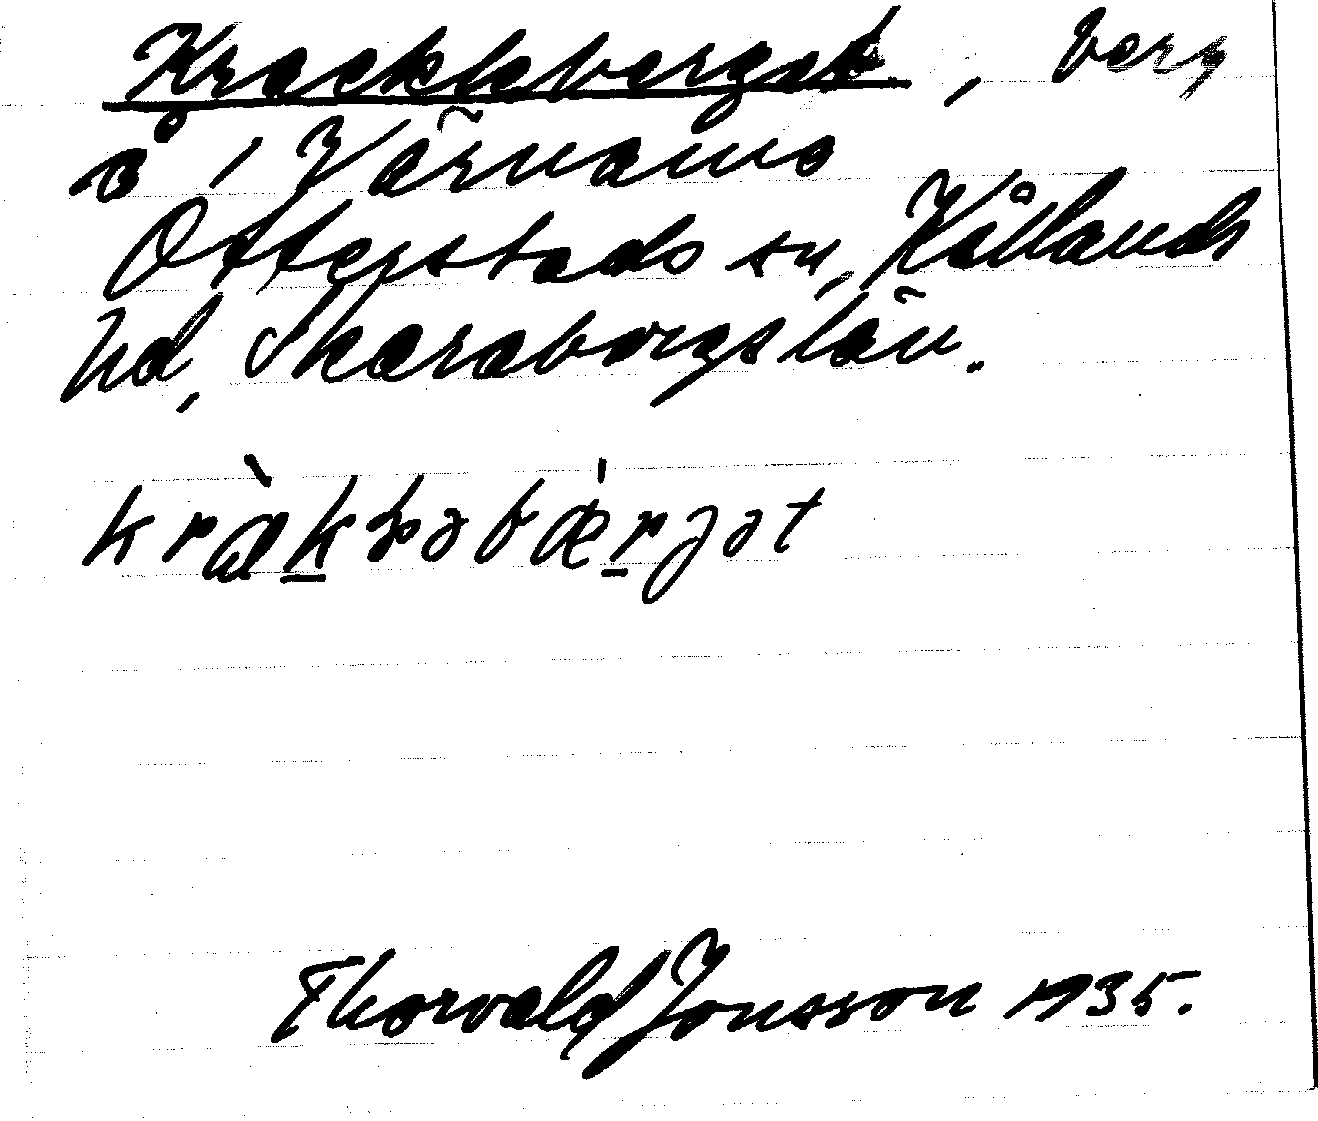 Krackleberget, berg
å i Värnamo
Otterstads sn, Kållands
hd, Skaraborgs län.
kràkləbæ̀rjət
Thorvald Jonsson 1935.